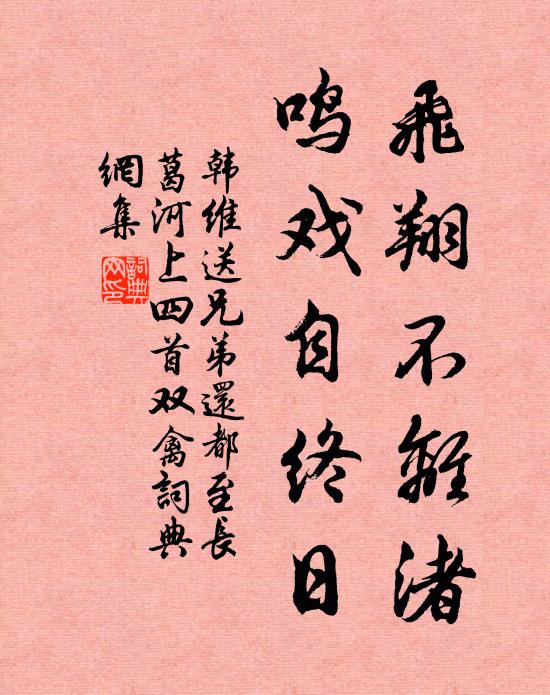 飛翔不離渚
鸣戏自终日
韩维送兄弟還都至長
葛河上四首双禽詞典
網集
詞典
网印